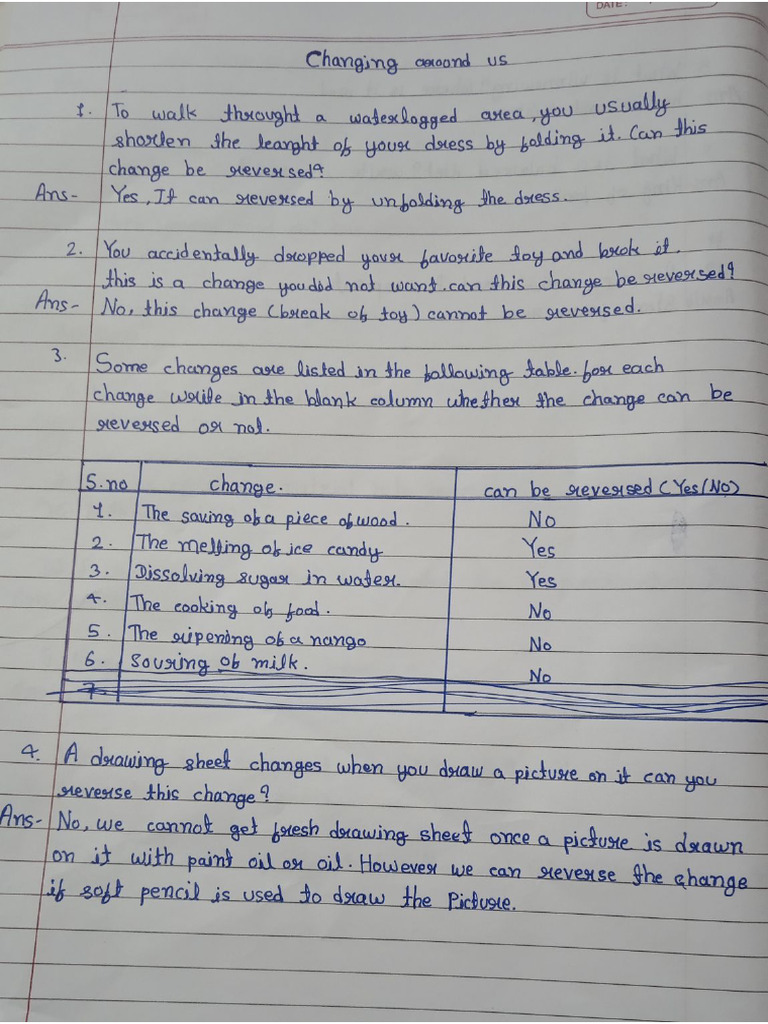 DATE:
Changing around us
1. To walk throught a waterlogged area, you usually
shorten the leanght of your dress by folding it. Can this
change be reversed?
Ans- Yes, It can reversed by unfolding the dress.
2. You accidentally dropped your favorite toy and brok it.
this is a change you did not want. can this change be reversed?
Ans- No, this change (break of toy) cannot be reversed.
3. Some changes are listed in the following table. for each
change write in the blank column whether the change can be
reversed or not.
S.no change. can be reversed (Yes/No)
1. The saving of a piece of wood. No
2. The melting of ice candy Yes
3. Dissolving sugar in water. Yes
4. The cooking of food. No
5. The ripening of a nango No
6. Souring of milk. No
7
4. A drawing sheet changes when you draw a picture on it can you
reverse this change?
Ans- No, we cannot get fresh drawing sheet once a picture is drawn
on it with paint oil or oil. However we can reverse the change
if soft pencil is used to draw the Picture.